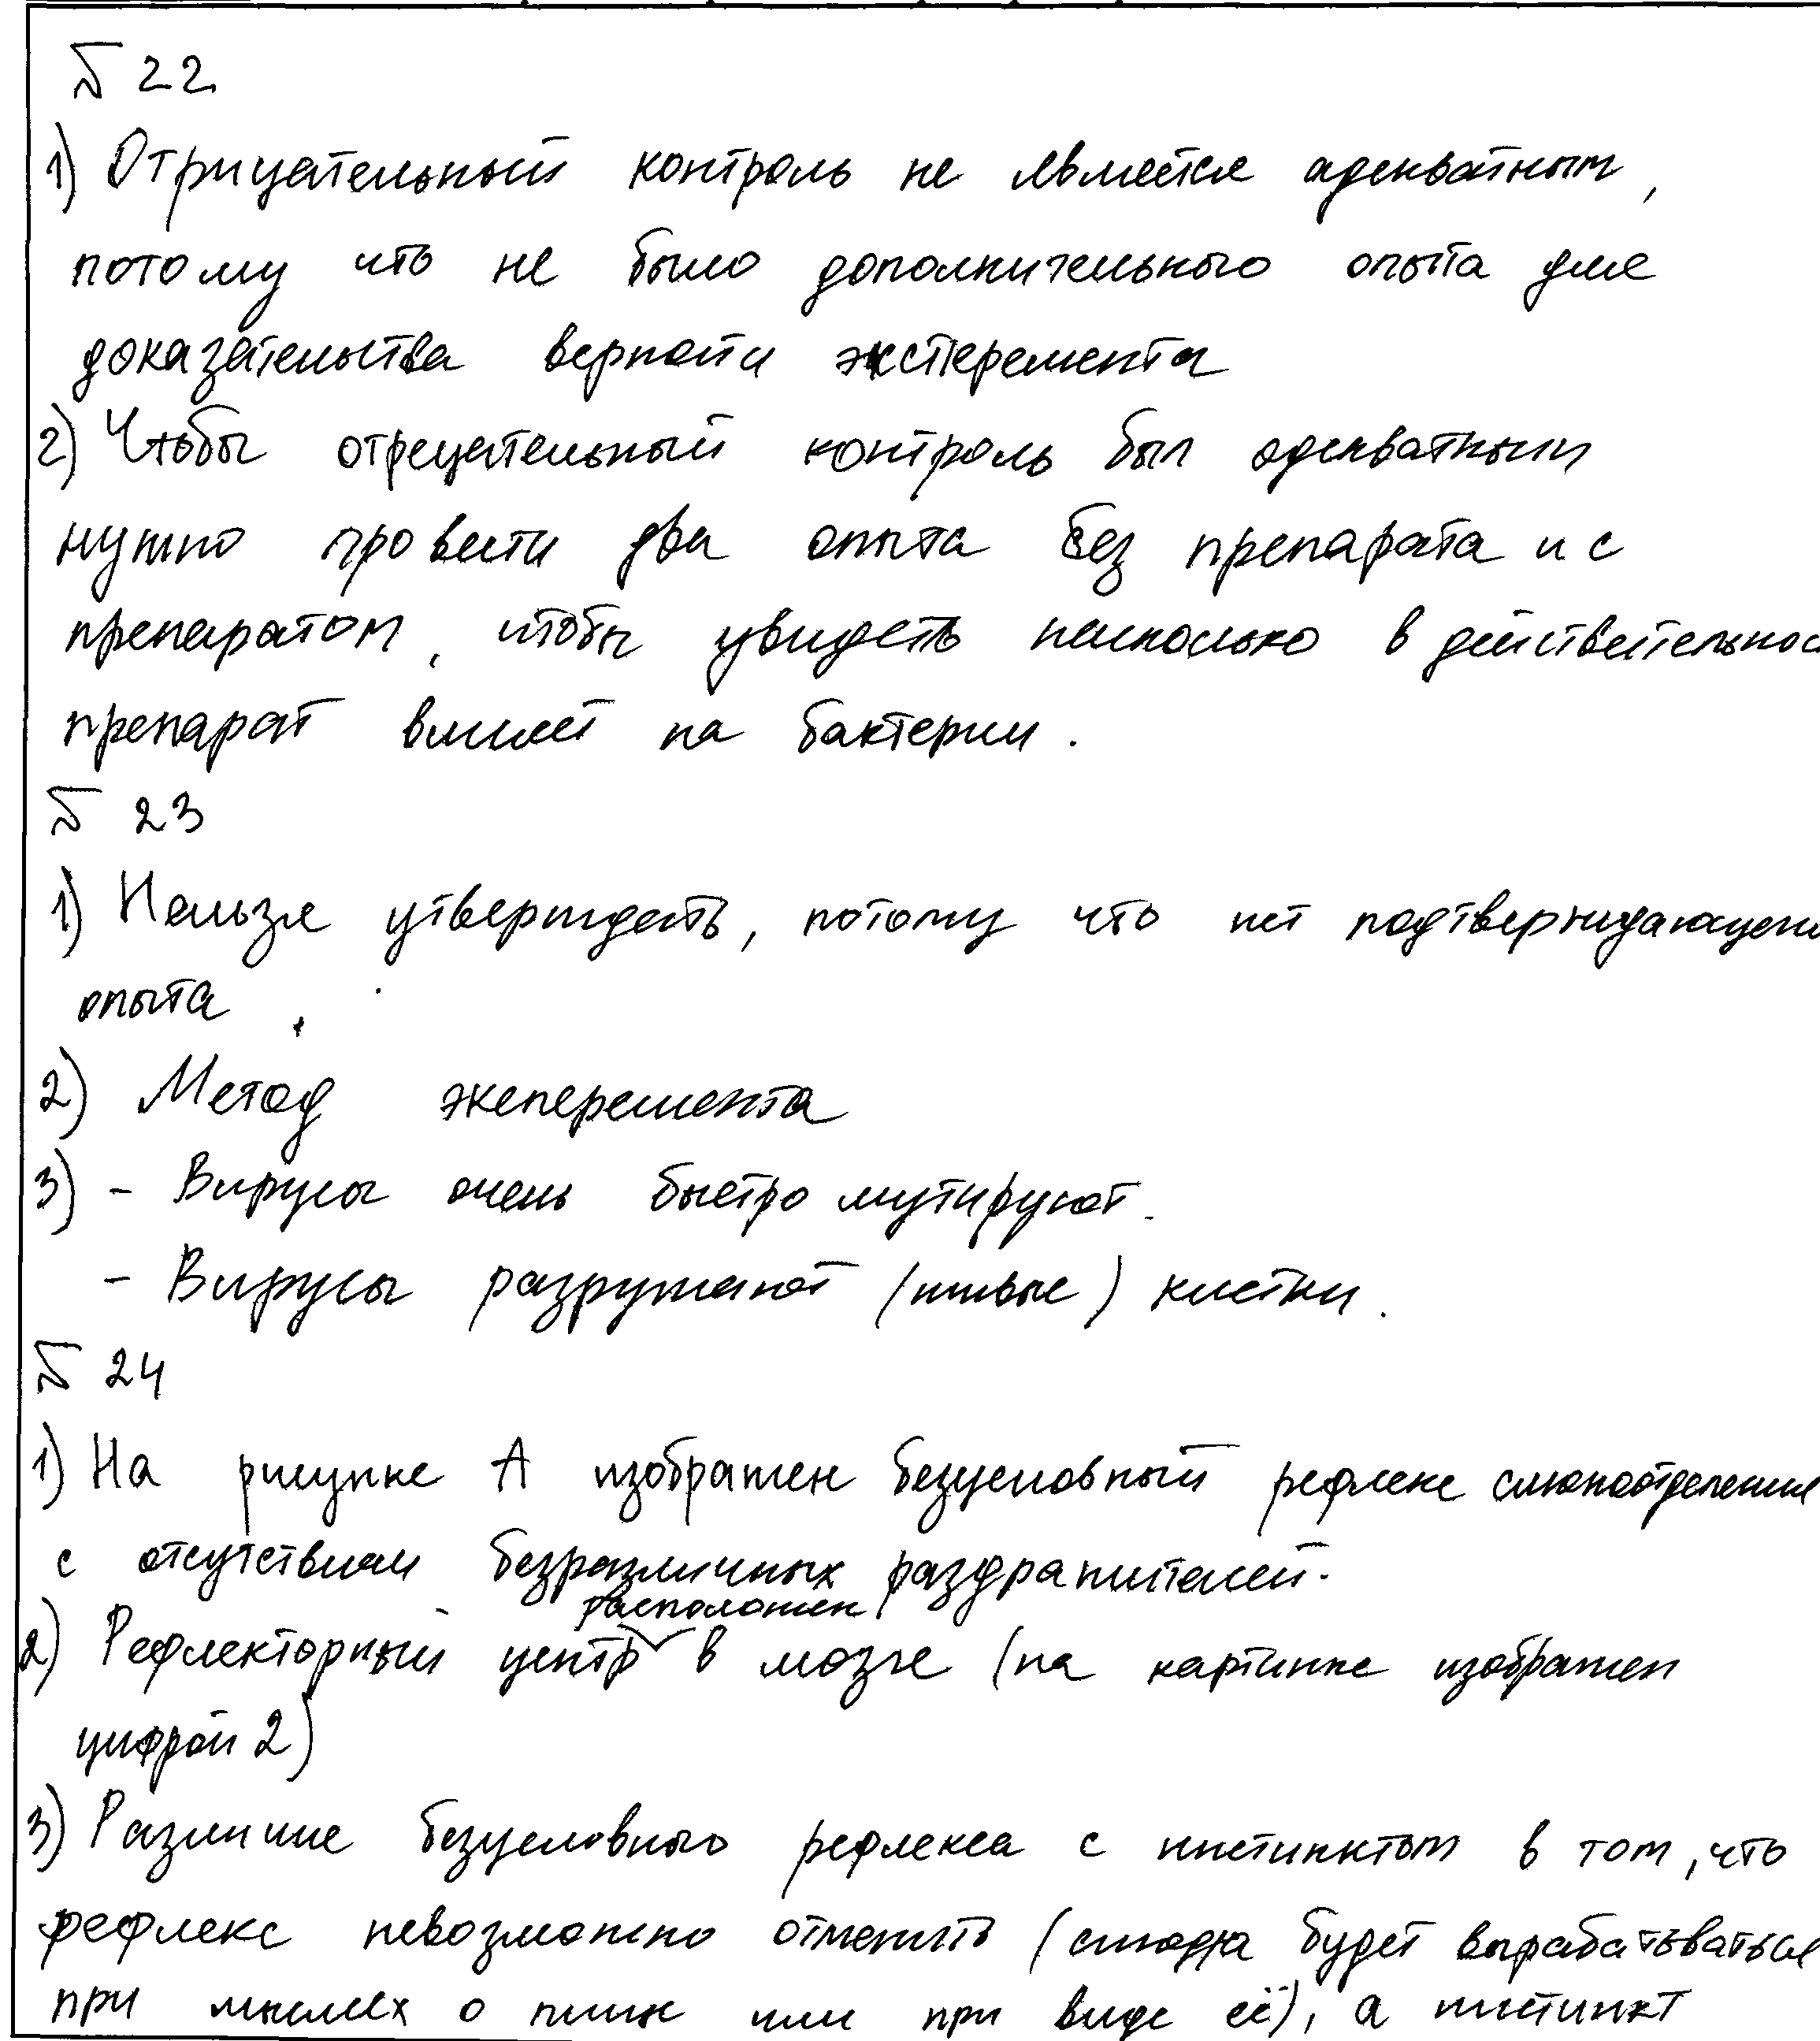 № 22
1) Отрицательный контроль не является адекватным,
потому что не было дополнительного опыта для
доказательства верности эксперемента
2) Чтобы отрецательный контроль был адекватным
нужно провести два опыта без препарата и с
препаратом, чтобы увидеть насколько в действительнос
препарат влияет на бактерии.
№ 23
1) Нельзя утверждать, потому что нет подтверждающего
опыта.
2) Метод эксперемента
3) - Вирусы очень быстро мутируют.
- Вирусы разрушают (живые) клетки.
№ 24
1) На рисунке А изображен безусловный рефлекс слюноотделения
с отсутствием безразличных раздражителей.
расположен
2) Рефлекторный центр в мозге (на картинке изображен
цифрой 2)
3) Различие безусловного рефлекса с инстинктом в том, что
рефлекс невозможно отменить (слюна будет вырабатываться
при мыслях о пище или при виде её), а инстинкт